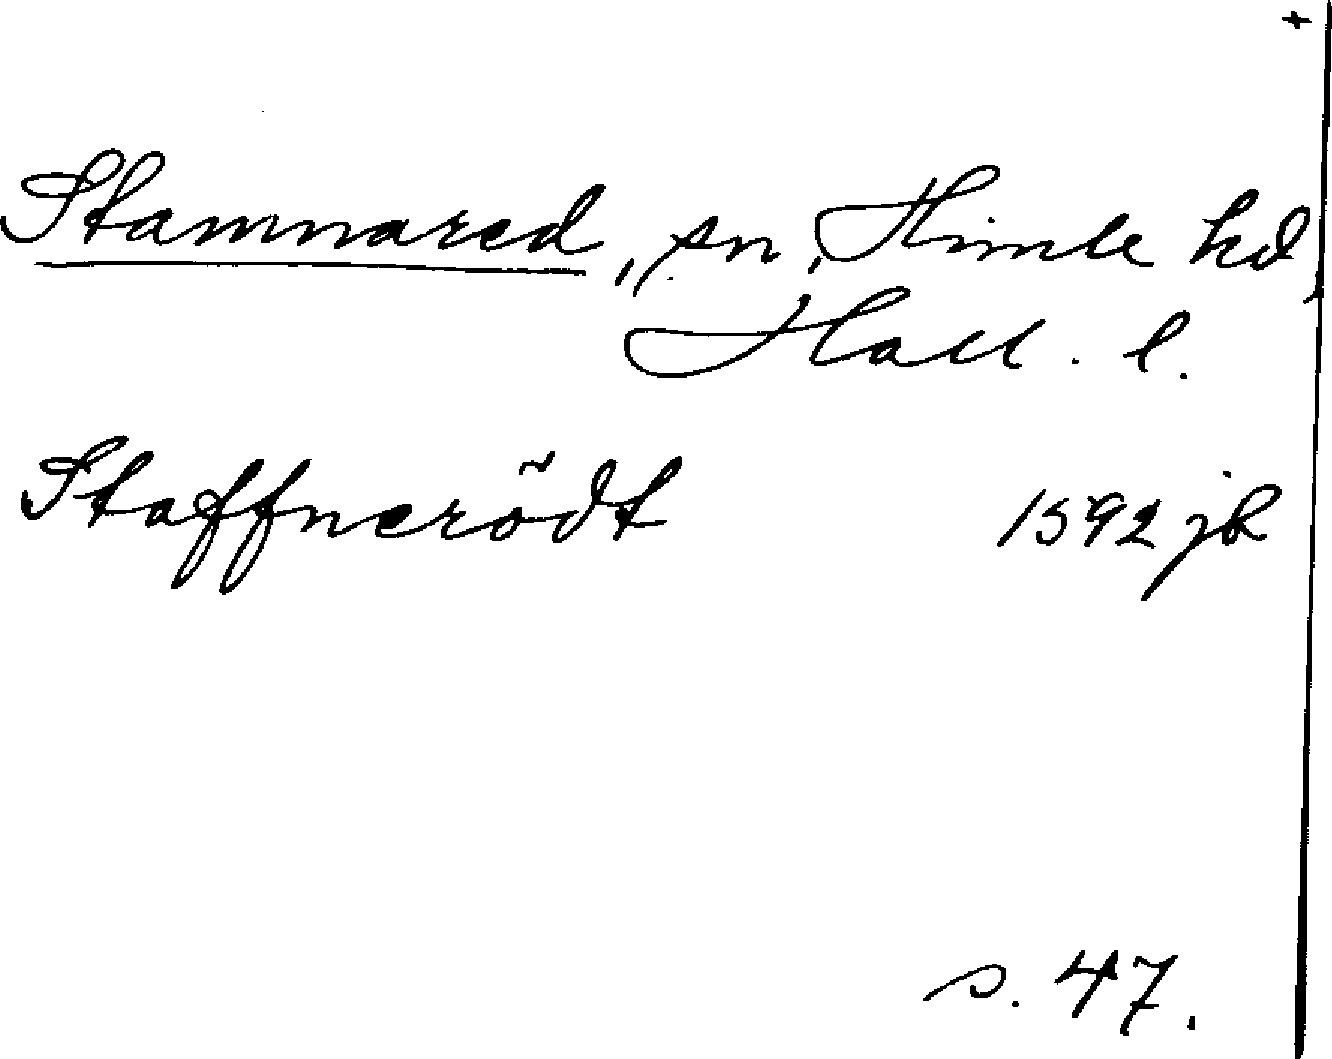 +
Stamnared, sn, Himle hd,
Hall. l.
Staffnerödt 1592 jb
s. 47.